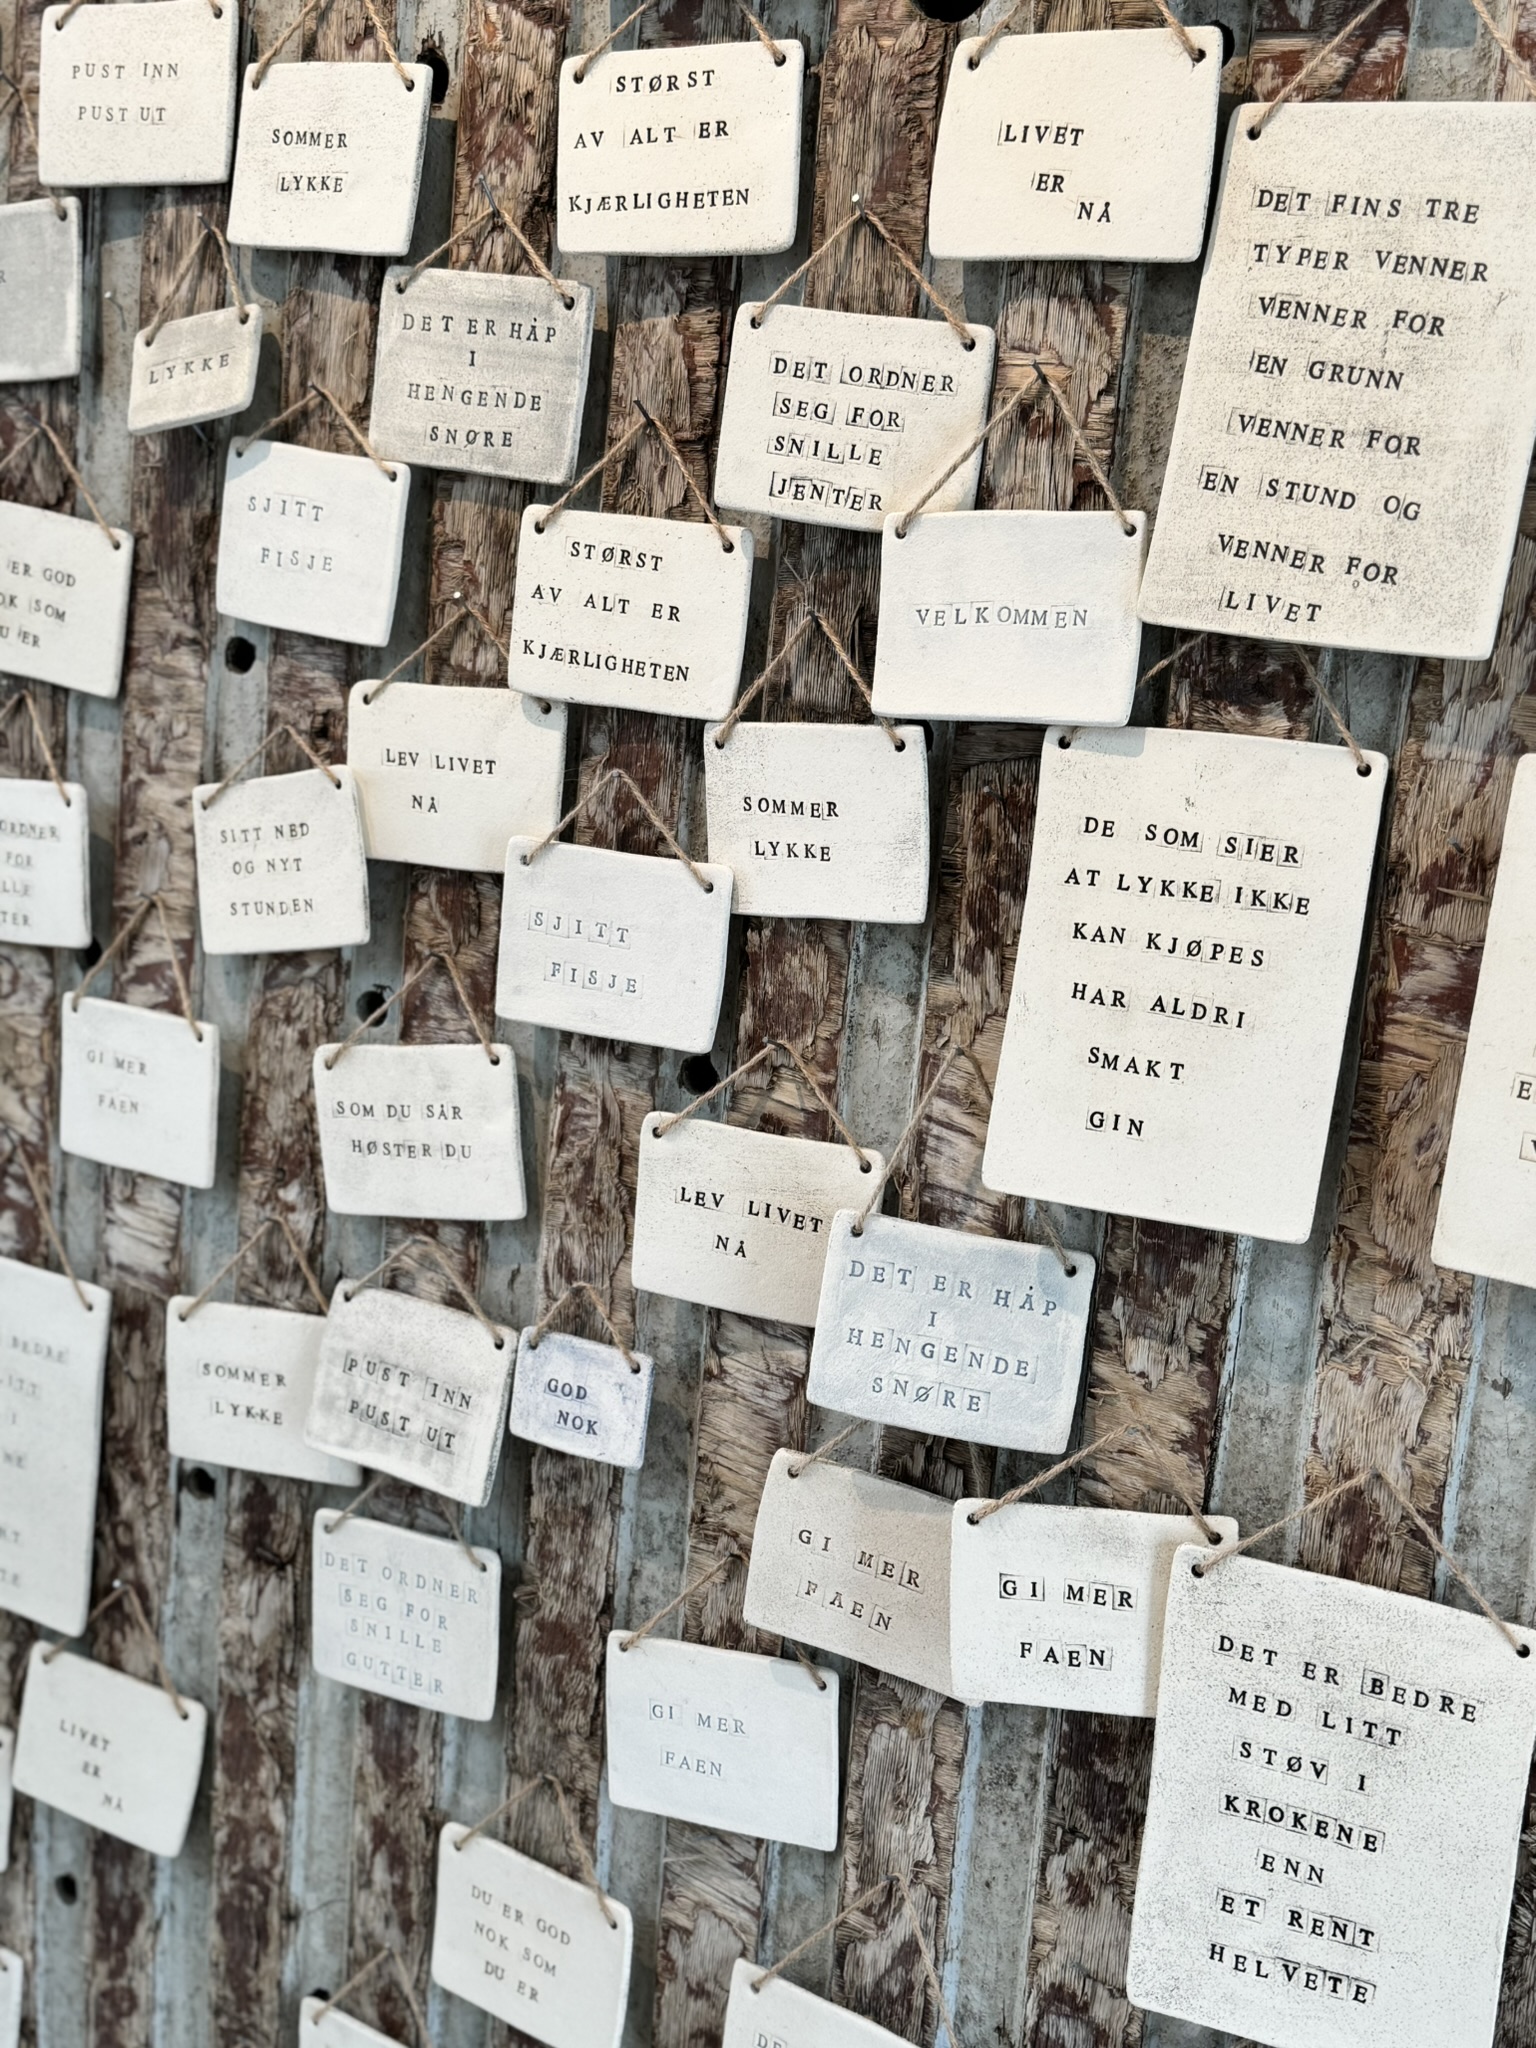 PUST INN
PUST UT
SOMMER
LYKKE
STØRST
AV ALT ER
KJÆRLIGHETEN
LIVET
ER
NÅ
DET FINS TRE
TYPER VENNER
VENNER FOR
EN GRUNN
VENNER FOR
EN STUND OG
VENNER FOR
LIVET
LYKKE
DET ER HÅP
I
HENGENDE
SNØRE
DET ORDNER
SEG FOR
SNILLE
JENTER
SJITT
FISJE
STØRST
AV ALT ER
KJÆRLIGHETEN
VELKOMMEN
ER GOD
SOM
ER
LEV LIVET
NÅ
SOMMER
LYKKE
DE SOM SIER
AT LYKKE IKKE
KAN KJØPES
HAR ALDRI
SMAKT
GIN
SITT NED
OG NYT
STUNDEN
ORDNER
FOR
SJITT
FISJE
GI MER
FAEN
SOM DU SÅR
HØSTER DU
LEV LIVET
NÅ
DET ER HÅP
I
HENGENDE
SNØRE
BEDRE
I
SOMMER
LYKKE
PUST INN
PUST UT
GOD
NOK
GI MER
FAEN
GI MER
FAEN
DET ORDNER
SEG FOR
SNILLE
GUTTER
DET ER BEDRE
MED LITT
STØV I
KROKENE
ENN
ET RENT
HELVETE
LIVET
ER
NÅ
GI MER
FAEN
DU ER GOD
NOK SOM
DU ER